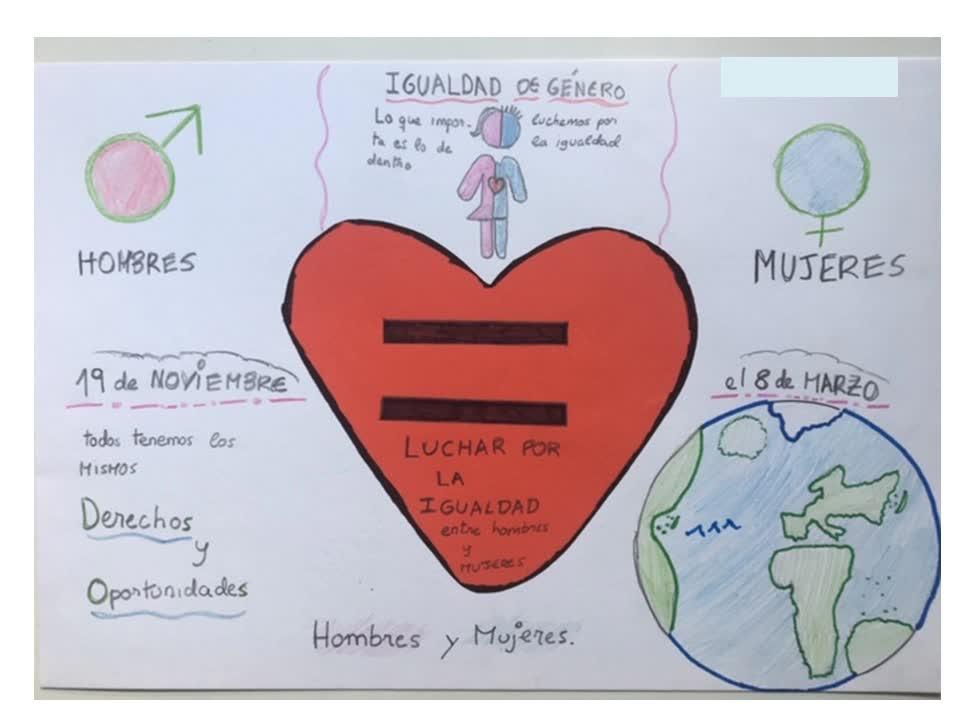 IGUALDAD DE GÉNERO
Lo que impor-
ta es lo de
dentro
luchemos por
la igualdad
HOMBRES
MUJERES
19 de NOVIEMBRE
todos tenemos los
MISMOS
Derechos
y
Oportunidades
el 8 de MARZO
LUCHAR POR
LA
IGUALDAD
entre hombres
y
MUJERES
Hombres y Mujeres.